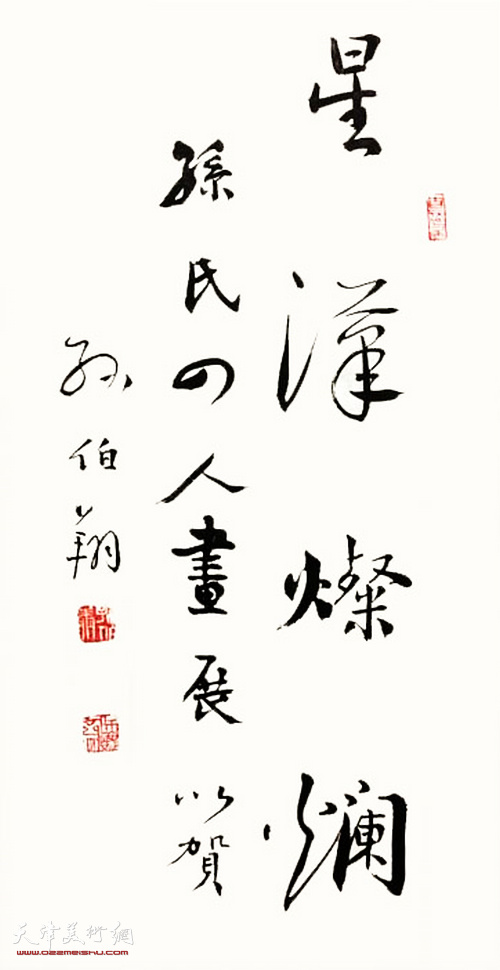 星漢燦爛
孫氏四人畫展以賀
孙伯翔
天津美术網
www.022meishu.com